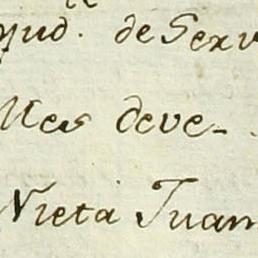 jud. de Serv
lles deve-
Nieta Juan